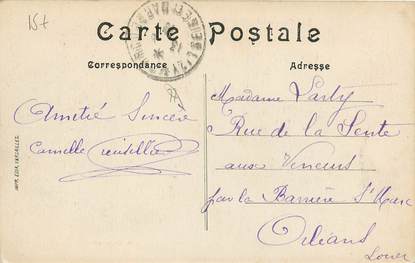 15+
Carte Postale
Correspondance
Adresse
Amitié Sincère
Camille
Madame Lasty
Rue de la Sente
aux Veneurs
par la Barrière St Marc
Orléans
Loiret